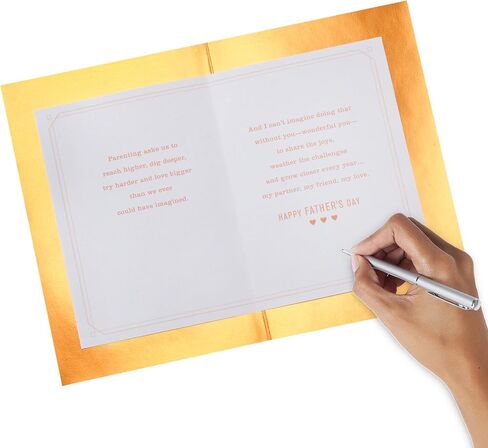 Parenting asks us to
reach higher, dig deeper,
try harder and love bigger
than we ever
could have imagined.
And I can't imagine doing that
without you—wonderful you—
to share the joys,
weather the challenges
and grow closer every year—
my partner, my friend, my love.
HAPPY FATHER'S DAY